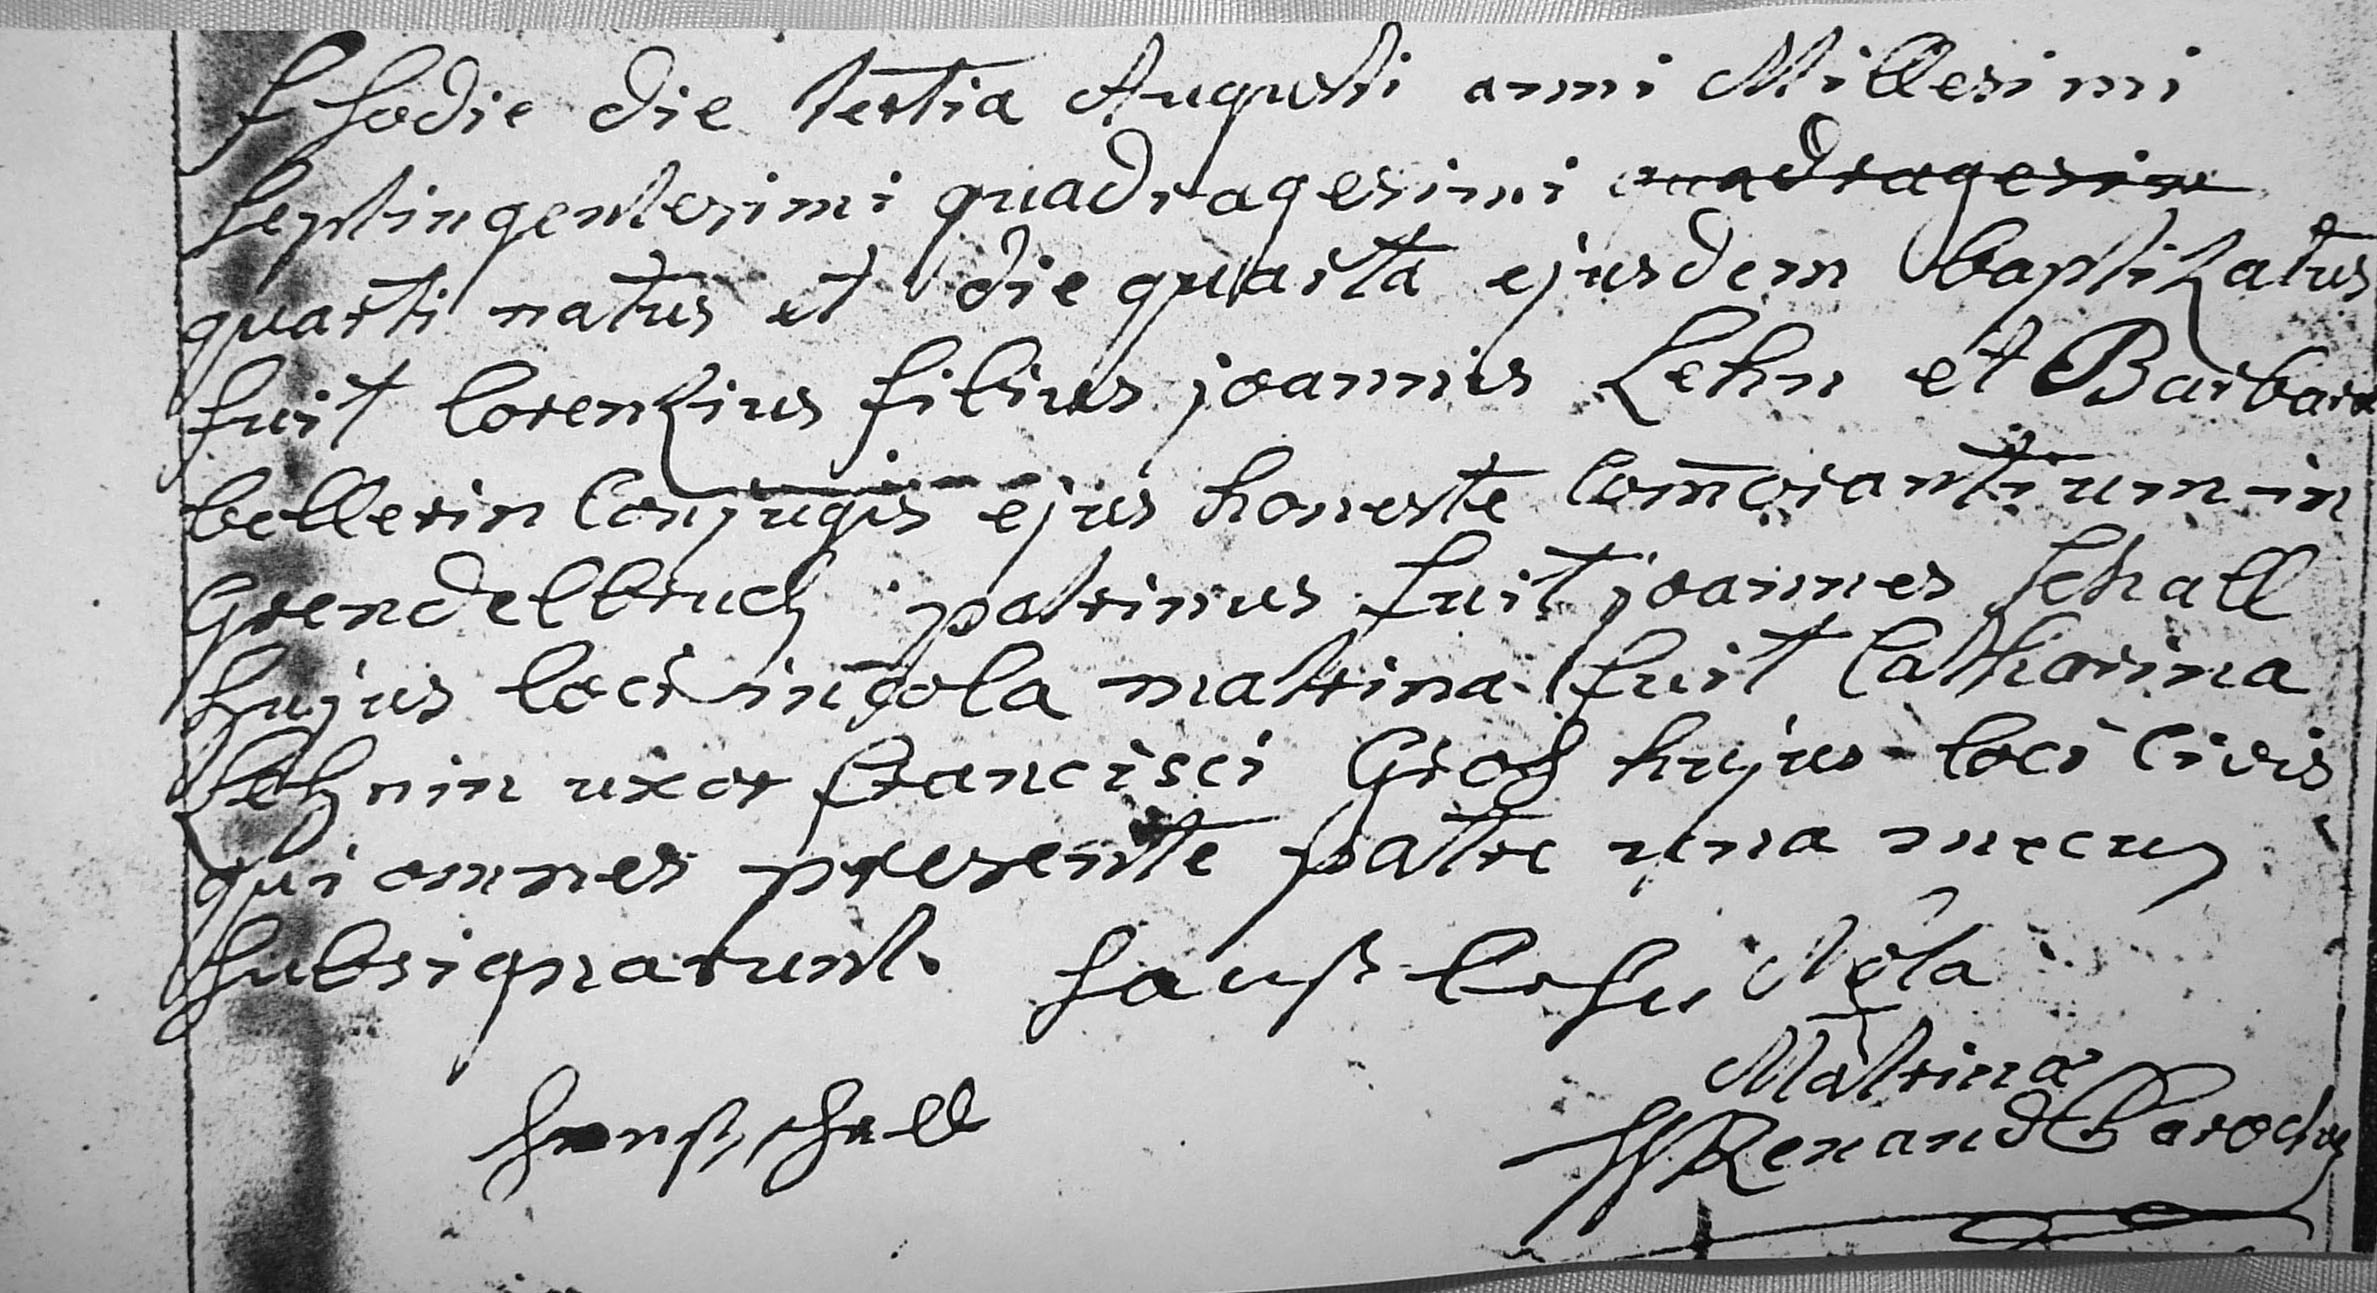 hodie die tertia Augusti anni Millesimi
septingentesimi quadragesimi quadragesim
quarti natus et die quarta ejusdem baptizatus
fuit lorenzius filius joannis Lehn et Barbara
bellerin Conjugis ejus honeste Com̄orantium in
Grendelbruch patrinus fuit joannes Schall
hujus loci incola matrina fuit Catharina
Lehnin uxor francisci Groß hujus loci Civis
qui omnes presente patre una mecum
subsignarunt. hanß lehn Nota
Matrinæ
hanß schall
Renaud Parochus